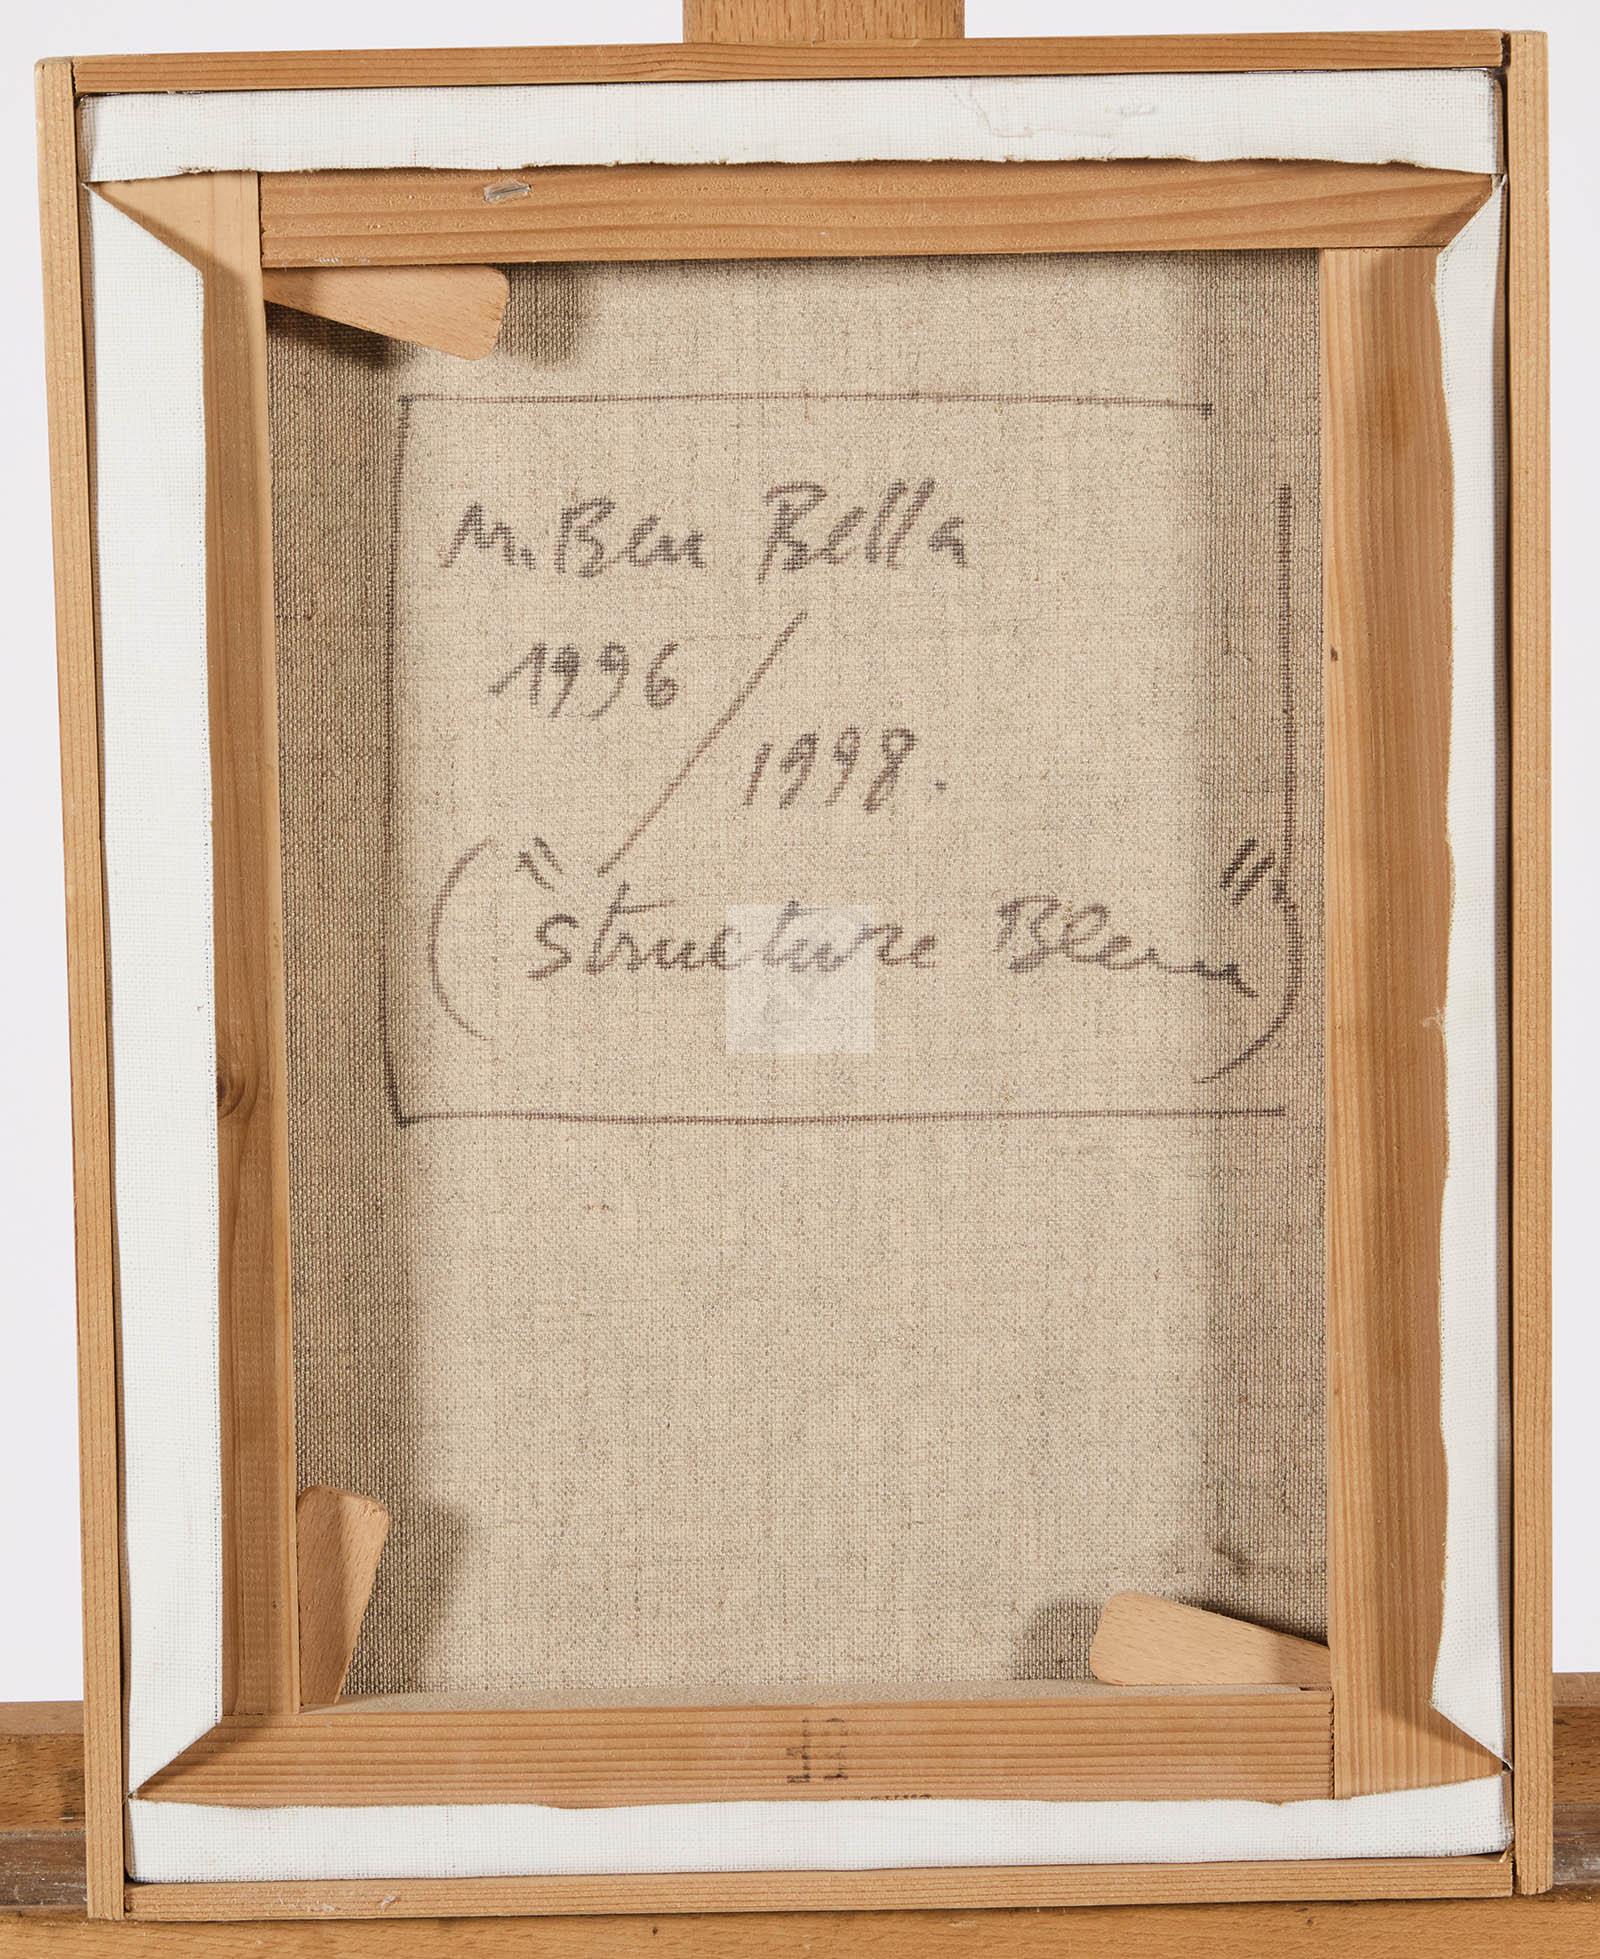 M. Ben Bella
1996 /
1998.
("Structure Bleu")